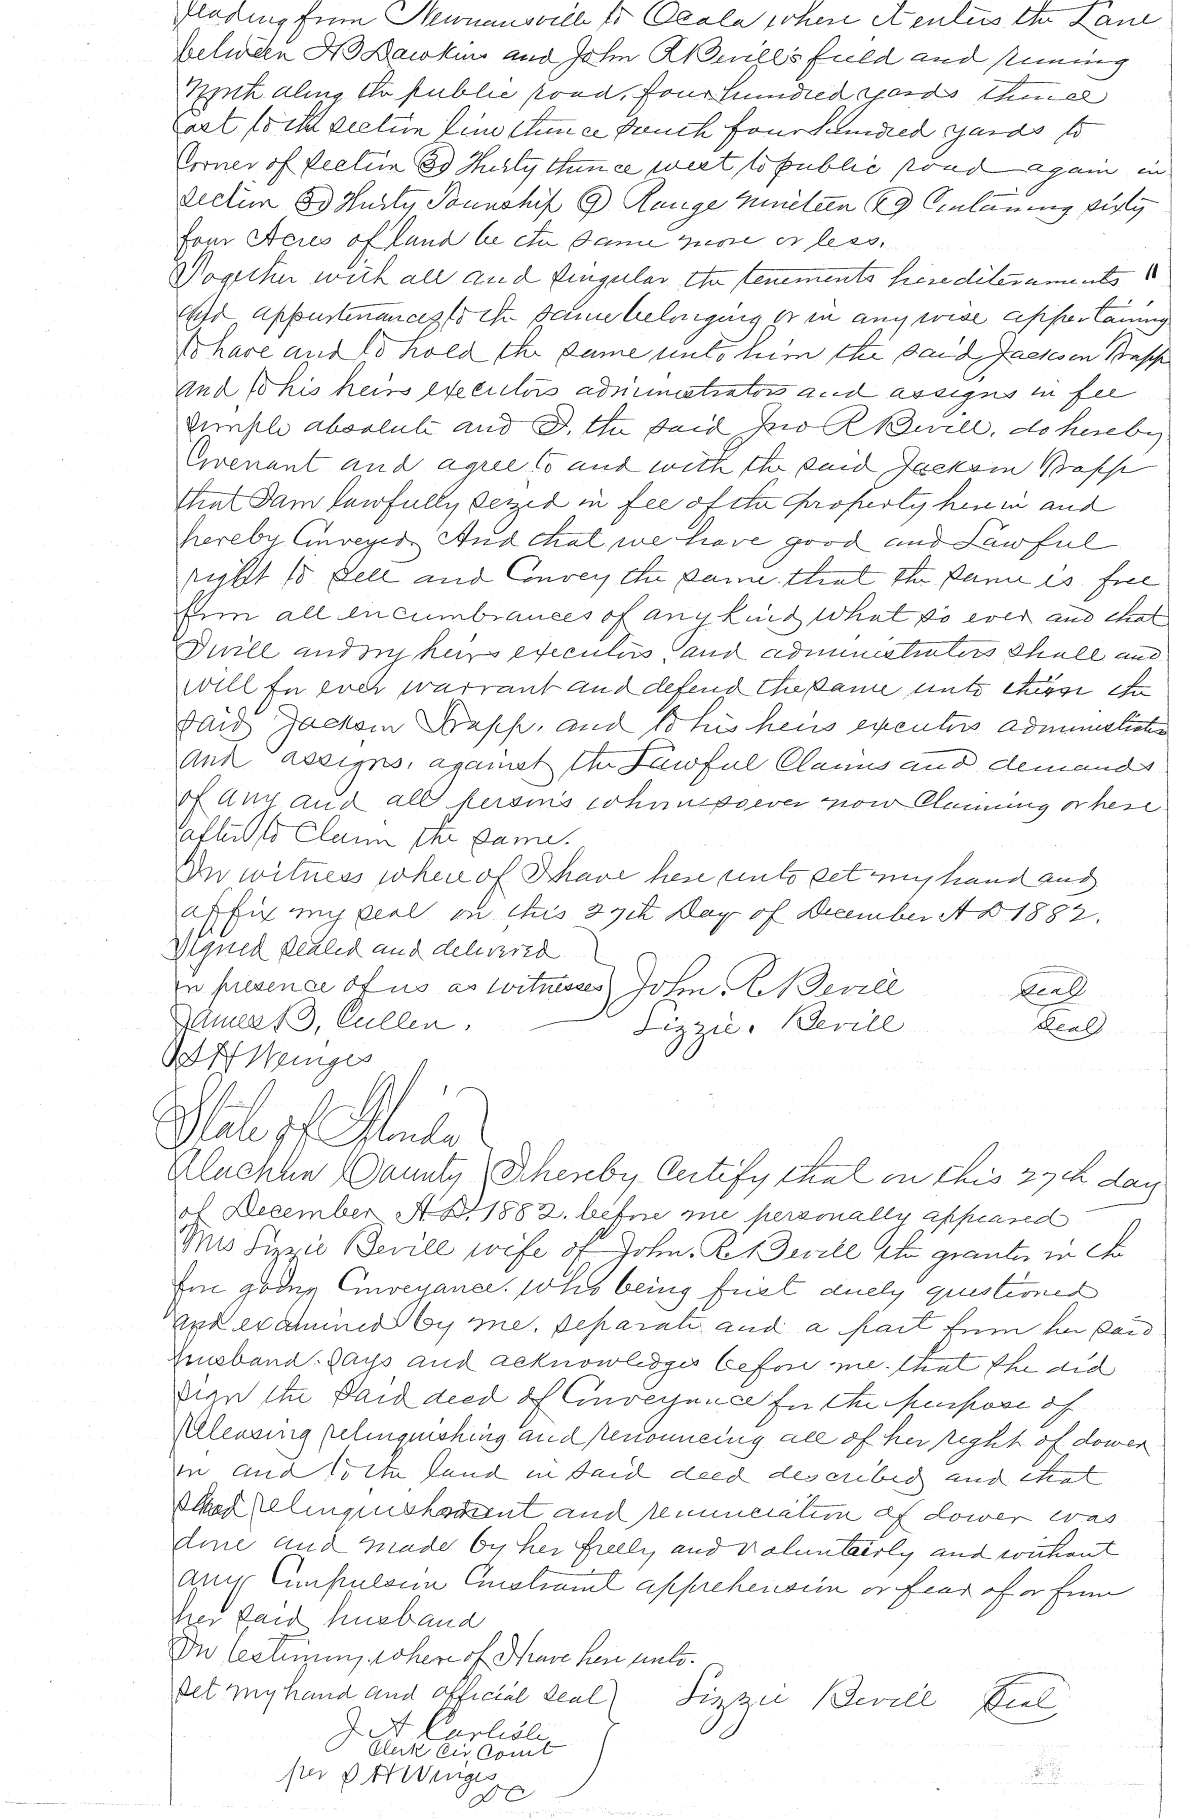 leading from Newnansville to Ocala where it enters the Lane
between H B Dawkins and John R Bevill's field and runing
North along the public road, four hundred yards thence
East to the section line thence South four hundred yards to
Corner of Section 30 Thirty thence west to public road again in
Section 30 Thirty Township 9 Range nineteen 19 Containing sixty
four Acres of land be the same more or less.
Together with all and singular the tenements herediteraments "
and appurtenances to the same belonging or in any wise appertaining
to have and to hold the same unto him the said Jackson Trapp
and to his heirs executors administrators and assigns in fee
simple absolute and I, the said Jno R Bevill, do hereby
Covenant and agree to and with the said Jackson Trapp
that I am lawfully seized in fee of the property herein and
hereby Conveyed And that we have good and Lawful
right to sell and Convey the same that the same is free
from all encumbrances of any kind what so ever and that
I will and my heirs executors, and administrators shall and
will for ever warrant and defend the same unto the
said Jackson Trapp, and to his heirs executors administrators
and assigns, against the Lawful Claims and demands
of any and all persons whomsoever now Claiming or here
after to Claim the same.
In witness where of I have here unto set my hand and
affix my seal on this 27th Day of December A D 1882.
Signed sealed and delivered
in presence of us as witnesses) John. R. Bevill Seal
James B, Cullen. Lizzie. Bevill Seal
H Weinges
State of Florida
Alachua County I hereby Certify that on this 27th day
of December A.D. 1882. before me personally appeared
Mrs Lizzie Bevill wife of John. R. Bevill the grantor in the
fore going Conveyance. who being first duely questioned
and examined by me. separate and a part from her said
husband. says and acknowledges before me. that she did
sign the said deed of Conveyance for the purpose of
releasing relinquishing and renouncing all of her right of dower
in and to the land in said deed described and that
said relinquishment and renunciation of dower was
done and made by her freely and voluntairly and without
any Compulsion Constraint apprehension or fear of or from
her said husband
In testimony where of I have here unto.
set my hand and official seal) Lizzie Bevill Seal
J. A Carlisle
Clerk Cir Court
per H Winges
DC